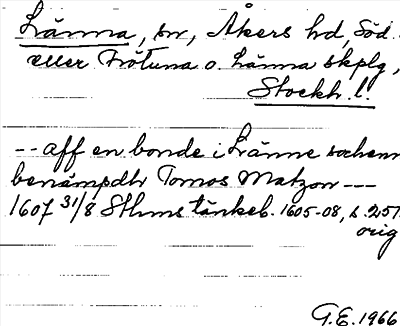 Länna, sn, Åkers hd, Söd.
eller Frötuna o. Länna skplg,
Stockh. l.
-- aff en bonde i Länne sochenn
benämpdh Tomos Matzon ---
1607 31/8 Sthms tänkeb. 1605-08, s. 257
orig
G.E. 1966